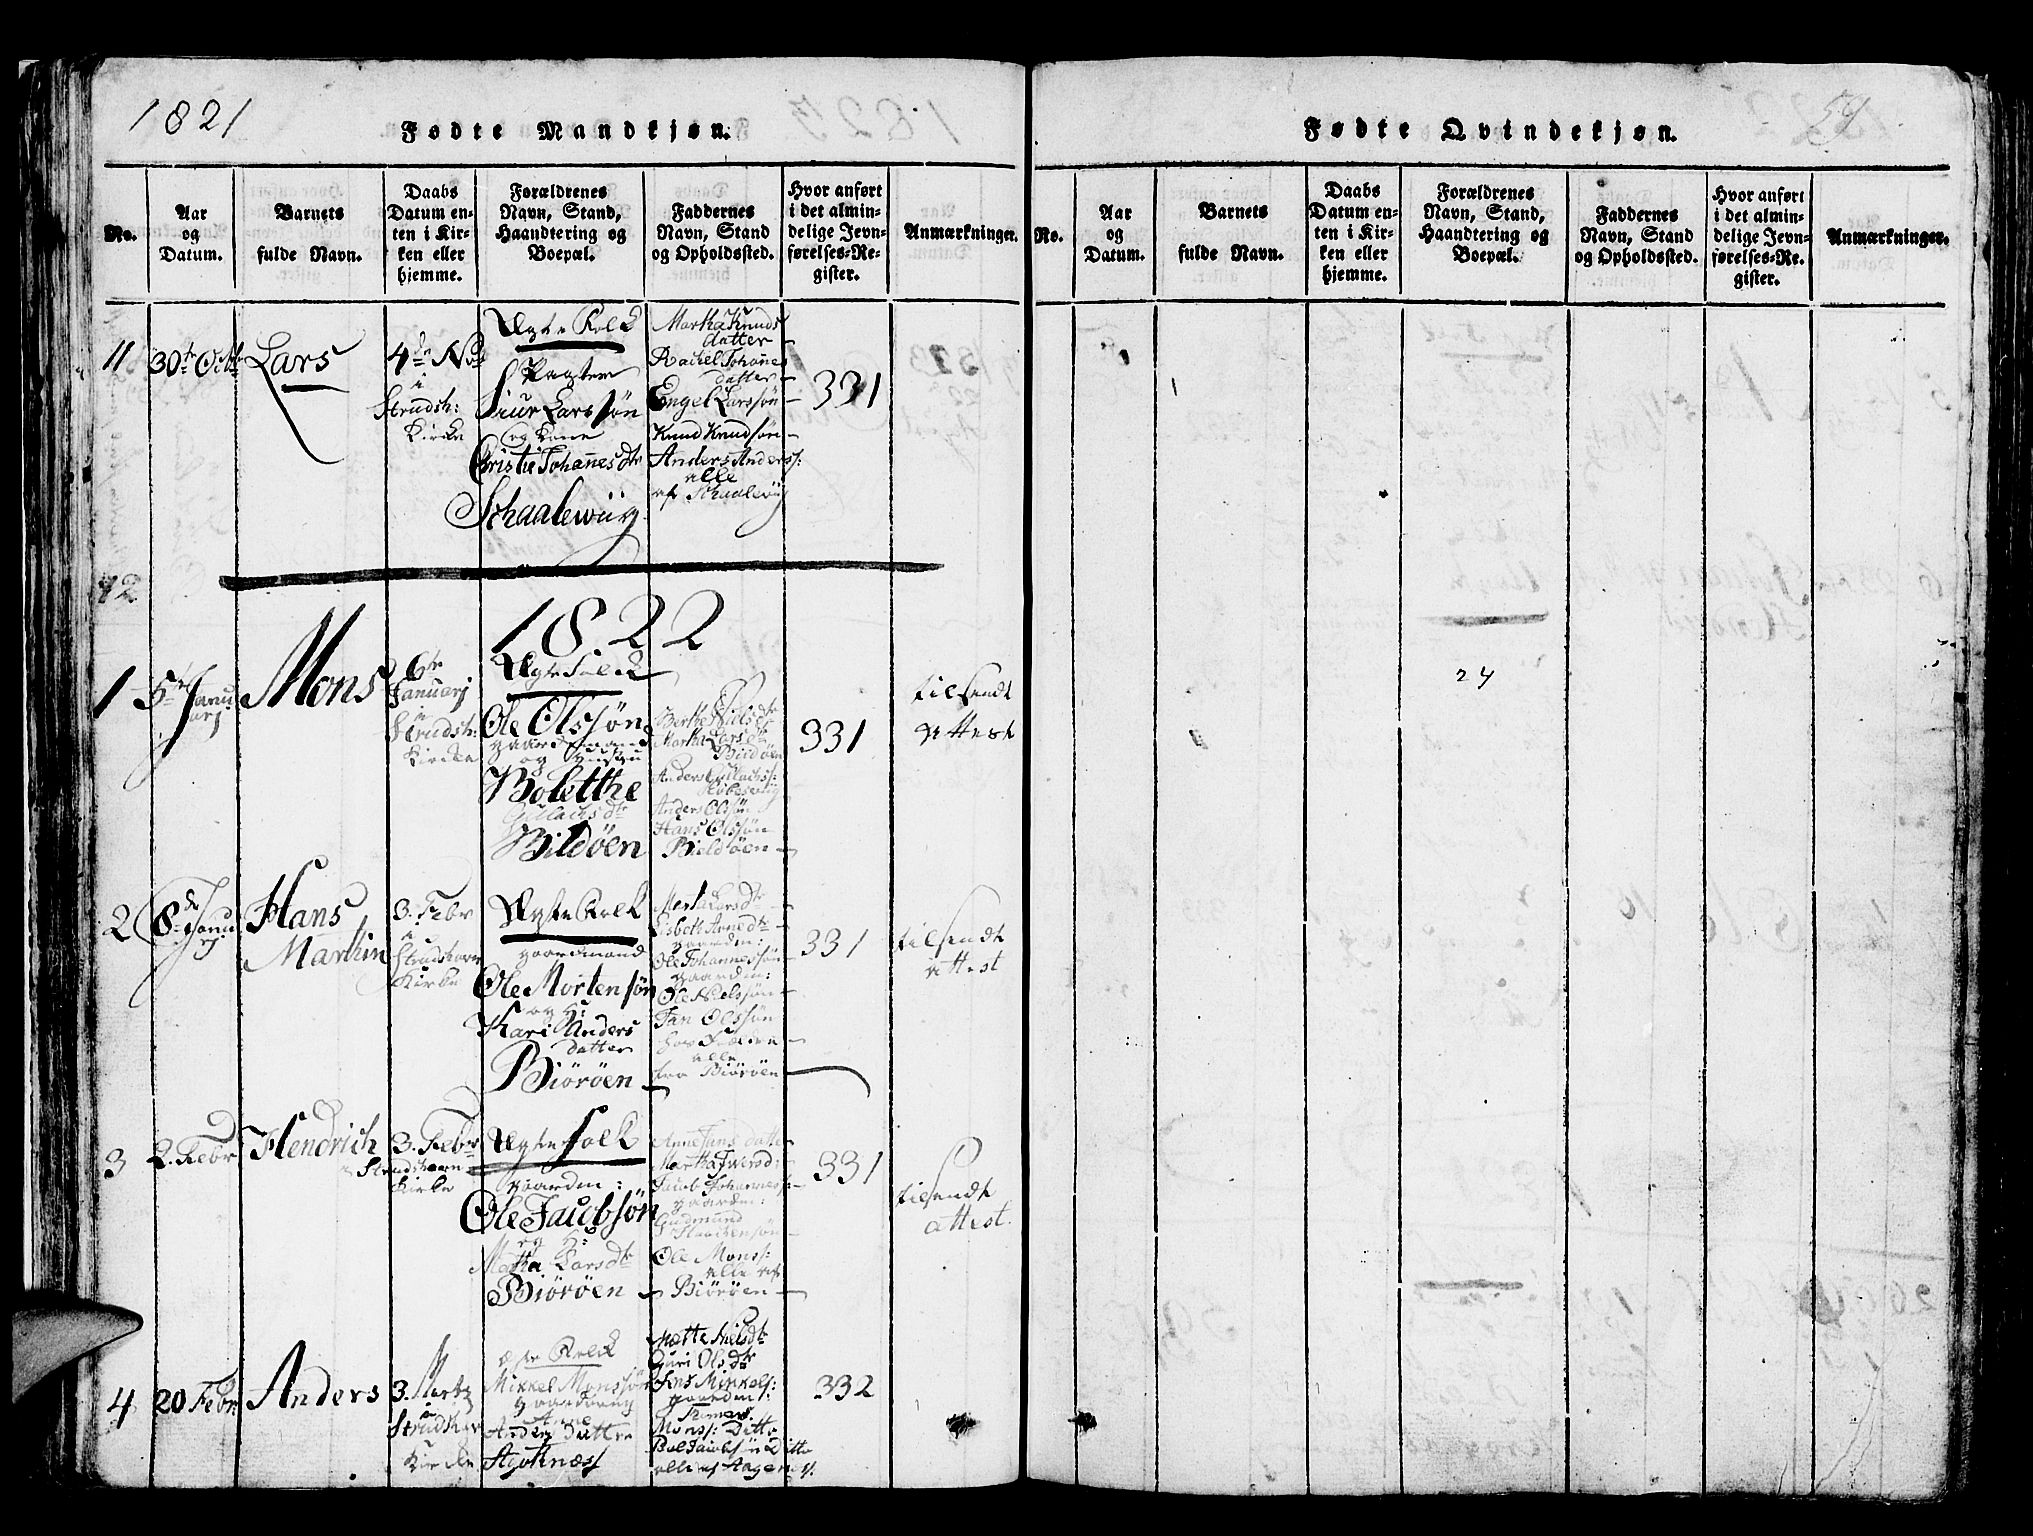 1821
Fødte Mandkjøn.
No.
Aar og Datum.
Barnets fulde Navn.
Daabs Datum enten i Kirken eller hjemme.
Forældrenes Navn, Stand, Haandtering og Boepæl.
Faddernes Navn, Stand og Opholdssted.
Hvor anført i det almindelige Jevnførelses-Register.
Anmærkninger.
11
30te Octbr
Lars
4de Nov
i
Strudsh:
Kirke
Ægte Folck
Siur Larssøn
og Kone
Christie Johannesdtr
Schaalewiig
Martha Knuds
datter
Rachel Johannes
datter
Engel Larssøn
Knud Knudsøn
Anders Anderss:
alle
af Schaalewiig
331
12
1822
1
5te Janu
arj
Mons
6te
Januarj
i
Strudsh:
Kirke
Ægte Folck
Ole Olssøn
gaardmand
og Hustru
Bolette
Gullachsdtr
Bildöen
Berthe Nielsdtr
Martha Larsdtr
Bildöen
Anders Gullachss:
Anders Olssøn
Hans Olssøn
Bieldöen
331
tilsendt
attest
2
8de Janu
arj
Hans
Marthin
3. Febr
i
Strudshavn
Kirke
Ægte Folck
gaardmand
Ole Mortensøn
og H:
Kari Anders
datter
Biöröen
Lisbeth Arnedtr
gaardm:
Ole Johannessøn
gaardm:
Ole Nielssøn
Jan Olssøn
alle
fra Biöröen
331
tilsendt
attest
3
2. Febr
Hendrich
3. Febr
i Strudshavn
Kirke
Ægte Folk
gaardm:
Ole Jacobsøn
og H:
Martha Larsdtr
Biöröen
Anne Jans datter
Martha Iwersd:
Jacob Johanness:
gaardm:
Gudmund
Haachensøn
Ole Monss:
alle af
Biöröen
331
tilsendt
attest.
4
20 Febr.
Anders
3. Martz
i
Strudshav
Kirke
ægte Folck
Mikkel Monssøn
Anne
Anders datter
Agotnæs
Mætte Nielsdtr
Guri Olsdtr
Jens Mikkels:
gaardm:
Monss: Ditto
Jacobsön Ditto
alle af Aagenæs.
332
59
Fødte Qvindekjøn.
No.
Aar og Datum.
Barnets fulde Navn.
Daabs Datum enten i Kirken eller hjemme.
Forældrenes Navn, Stand, Haandtering og Boepæl.
Faddernes Navn, Stand og Opholdssted.
Hvor anført i det almindelige Jevnførelses-Register.
Anmærkninger.
24